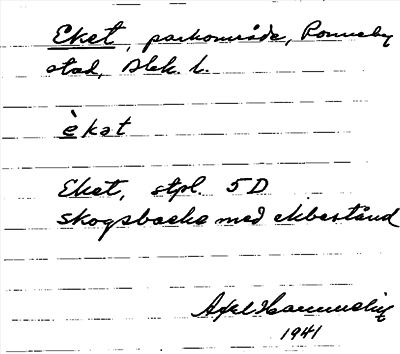 Eket, parkområde, Ronneby
stad, Blek. l.
èkət
Eket, stpl. 5D
skogsbacke med ekbestånd
Axel
1941